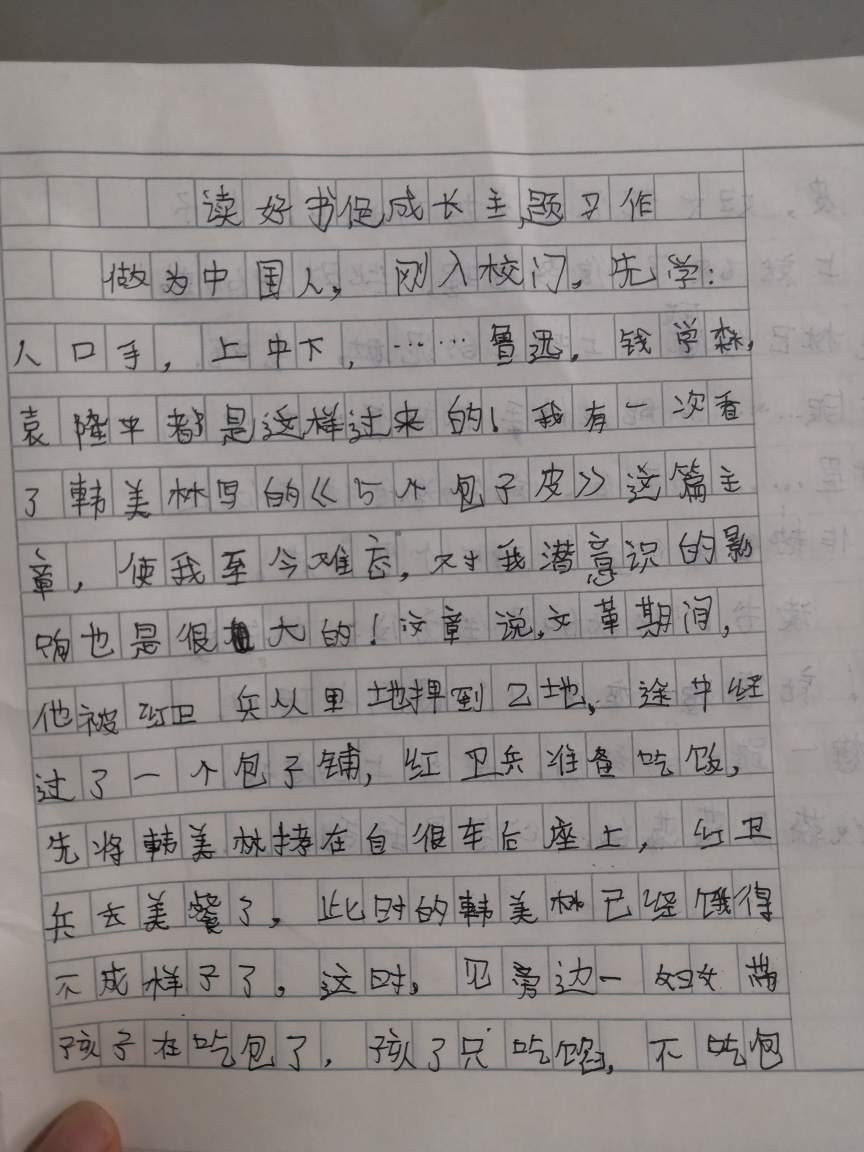 读好书促成长主题习作
做为中国人，刚入校门，先学：
人口手，上中下，……鲁迅，钱学森，
袁隆平都是这样过来的！我有一次看
了韩美林写的《5个包子皮》这篇主
章，使我至今难忘，对我潜意识的影
响也是很大的！这章说，文革期间，
他被红卫兵从里地押到乙地，途中经
过了一个包子铺，红卫兵准备吃饭，
先将韩美林拷在自很车后座上，红卫
兵去美餐了，此时的韩美林已经饿得
不成样子了。这时，见旁边一妇女带
孩子在吃包了，孩了只吃馅，不吃包